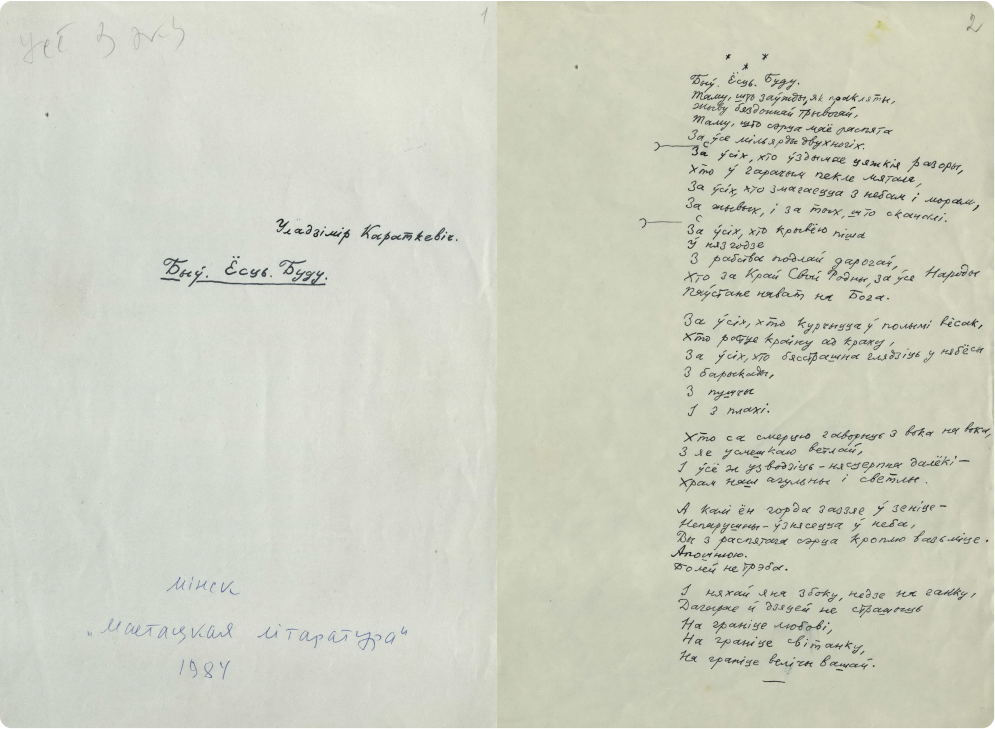 1
Уладзімір Караткевіч.
Быў. Ёсць. Буду.
Мінск
„Мастацкая літаратура“
1984
2
* * *
Быў. Ёсць. Буду.
Таму, што заўжды, як пракляты,
Жыву бяздоннай трывогай,
Таму, што сэрца маё распята
За ўсе мільярды двухногіх.
За ўсіх, хто ўздымае цяжкія разоры,
Хто ў гарачым пекле мятала,
За ўсіх, хто змагаецца з небам і морам,
За жывых, і за тых, што сканалі.
За ўсіх, хто крывёю піша
Ў нязгодзе
З рабства подлай дарогай,
Хто за Край Свой Родны, за ўсе Народы
Паўстане нават на Бога.
За ўсіх, хто курчыцца ў полымі вёсак,
Хто ратуе краіну ад краху,
За ўсіх, хто бясстрашна глядзіць у нябёсы
З барыкады,
З пушчы
І з плахі.
Хто са смерцю гаворыць з вока на вока,
З яе усмешкаю ветлай,
І ўсё ж узводзіць – нясцерпна далёкі –
Храм наш агульны і светлы.
А калі ён горда заззяе ў зеніце –
Непарушны – ўзнясецца ў неба,
Ды з распятага сэрца кроплю вазьміце.
Апошнюю.
Болей не трэба.
І няхай яна збоку, недзе на ганку,
Дагарае й дзяцей не страшыць
На граніце любові,
На граніце світанку,
На граніце велічы вашай.